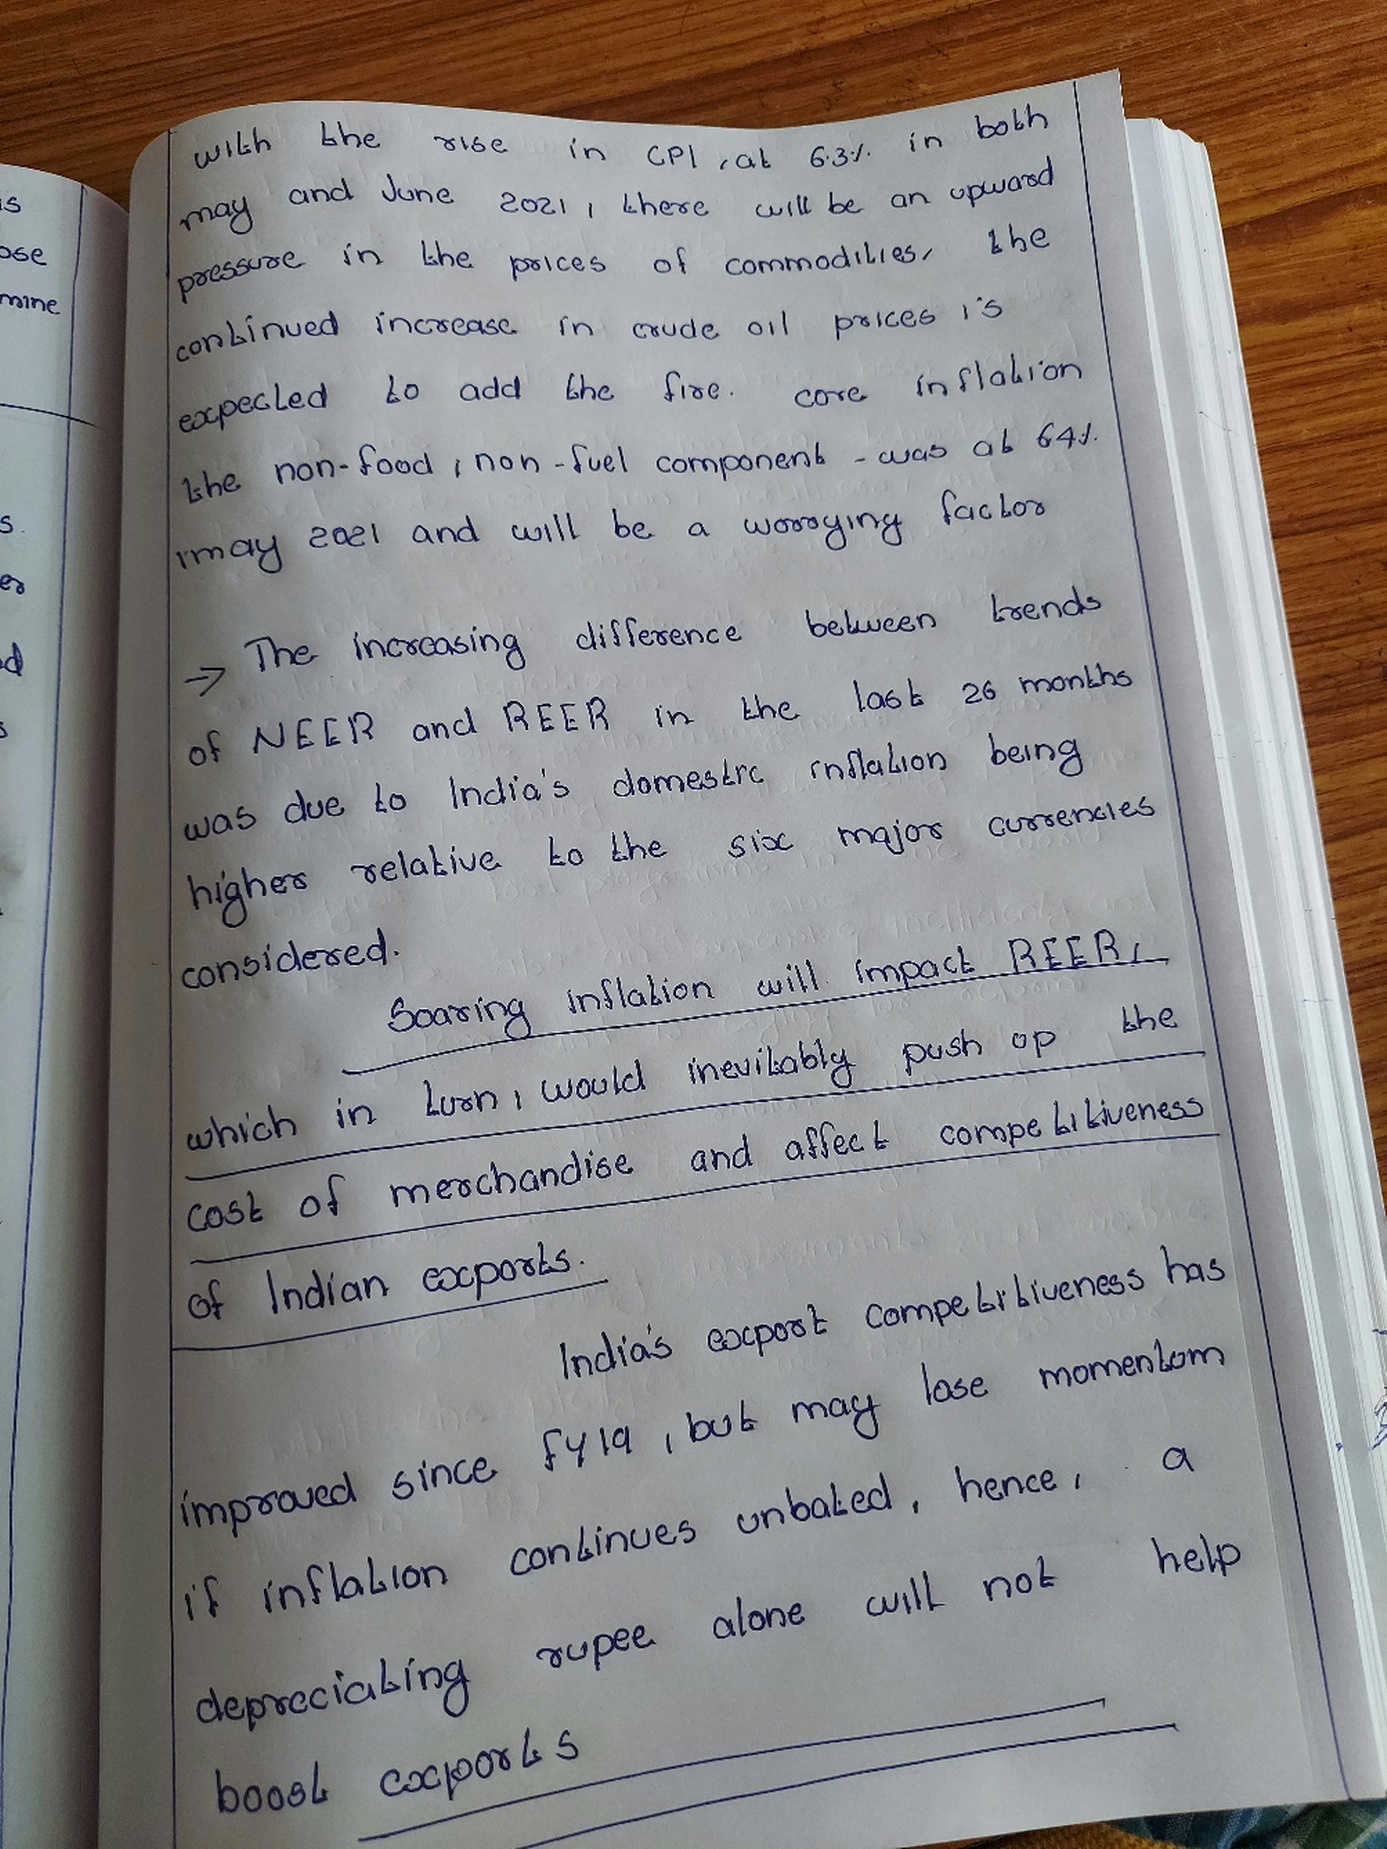 with the rise in CPI, at 6.3% in both
may and June 2021, there will be an upward
pressure in the prices of commodities, the
continued increase in crude oil prices is
expected to add the fire. core inflation
the non-food, non-fuel component - was at 64%
may 2021 and will be a worrying factor
→ The increasing difference between trends
of NEER and REER in the last 26 months
was due to India's domestic inflation being
higher relative to the six major currencies
considered.
Soaring inflation will impact REER,
which in turn, would inevitably push up the
cost of merchandise and affect competitiveness
of Indian exports.
India's export competitiveness has
improved since fy19, but may lose momentum
if inflation continues unbated, hence, a
depreciating rupee alone will not help
boost exports
is
ose
mine
s.
er
d
s